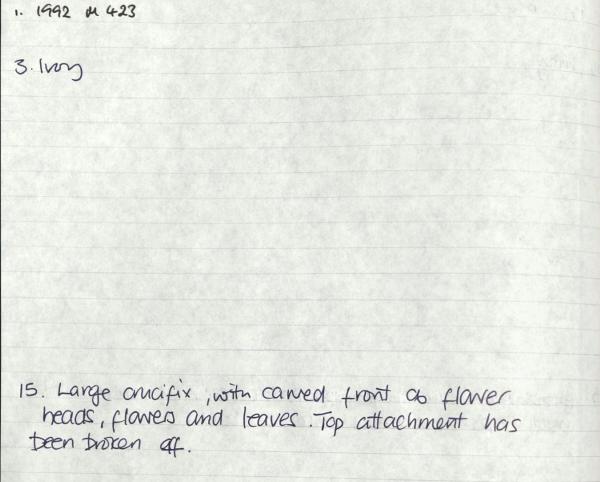 1. 1992 M 423
3. Ivory
15. Large crucifix, with carved front of flower
heads, flowers and leaves. Top attachment has
been broken off.